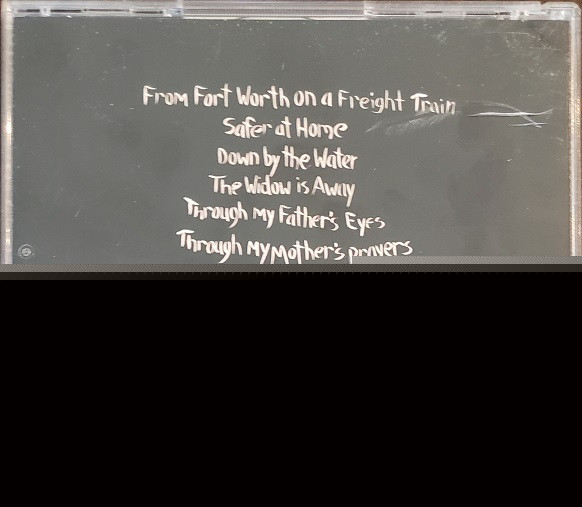 From Fort Worth on a Freight Train
Safer at Home
Down by the Water
The Widow is Away
Through My Father's Eyes
Through My Mother's prayers